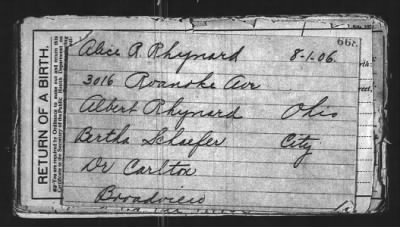 668
Alice R. Rhynard 8-1.06.
3016 Roanoke Ave
Albert Rhynard Ohio
Bertha Schaefer City
Dr Carlton
Broadview
RETURN OF A BIRTH.